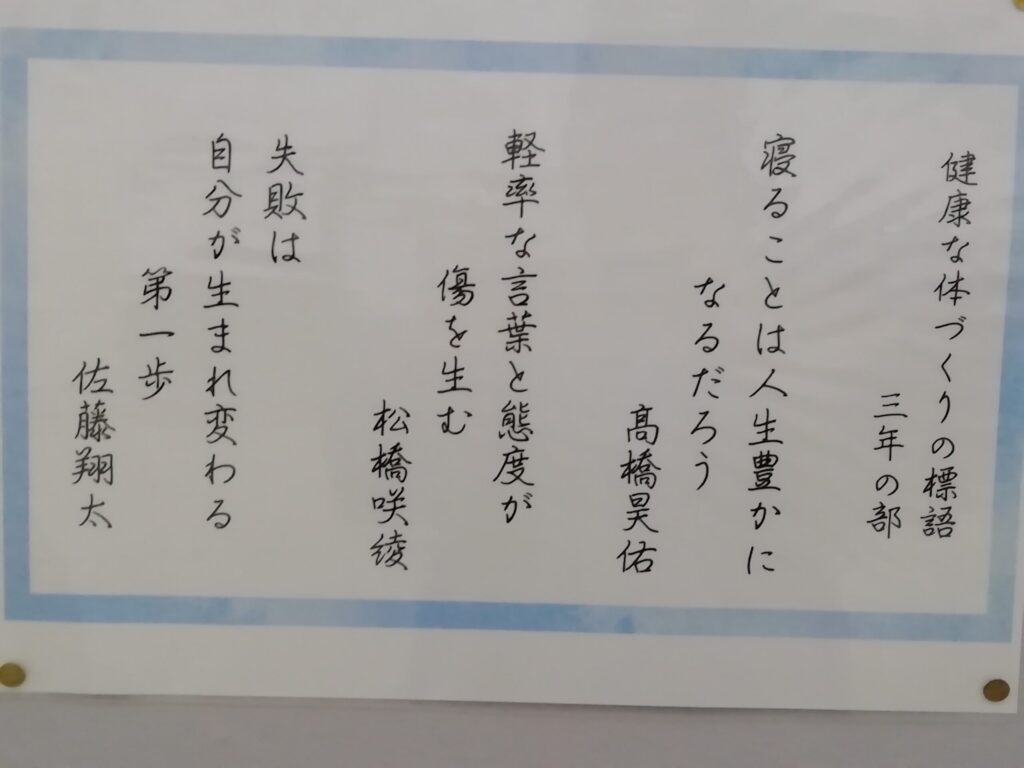 健康な体づくりの標語
三年の部
寝ることは人生豊かに
なるだろう
髙橋昊佑
軽率な言葉と態度が
傷を生む
松橋咲綾
失敗は
自分が生まれ変わる
第一歩
佐藤翔太